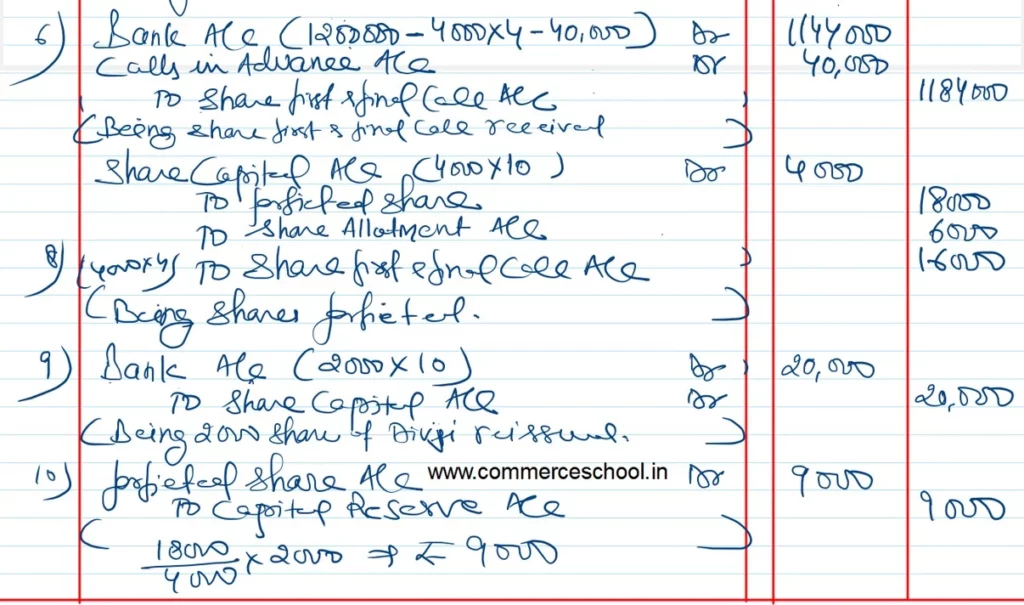 6) Bank A/c (1200000 - 4000×4 - 40,000) Dr 1144000
Calls in Advance A/c Dr 40,000
To Share first & final Call A/c 1184000
(Being share first & final Call received)
Share Capital A/c (4000×10) Dr 4000
To forfieted share 18000
To Share Allotment A/c 6000
8) (4000×4) To Share first & final Call A/c 16000
(Being Shares forfieted.)
9) Bank A/c (2000×10) Dr 20,000
To Share Capital A/c Dr 20,000
(Being 2000 Share of reissued.)
10) forfieted Share A/c www.commerceschool.in Dr 9000
To Capital Reserve A/c 9000
18000/4000 × 2000 ⇒ ₹ 9000